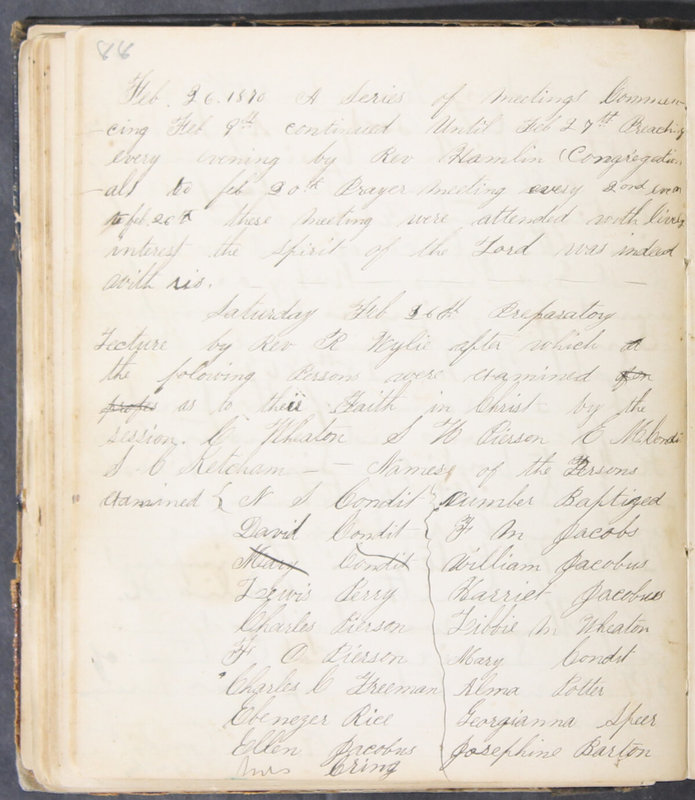 88
Feb. 26. 1870 A Series of Meetings Commen-
-cing Feb 9th continued Until Feb 27th Preaching
every evening by Rev Hamlin (Congregation-
-als to feb 20th Prayer meeting every 2nd even
to feb. 26th these meeting were attended with lively
interest the spirit of the Lord was indeed
with us.
Saturday Feb 26th Preparatory
Lecture by Rev R Wylie after which
the folowing Persons were examined
as to their Faith in Christ by the
session. Wheaton S H Pierson E M Condit
S C Ketcham - - Names of the Persons
examined { N S Condit } number Baptized
David Condit { F M Jacobs
Mary Condit William Jacobus
Lewis Perry Harriet Jacobus
Charles Pierson Libbie M Wheaton
F O Pierson Mary Condit
Charles C Freeman Alma Potter
Ebenezer Rice Georgianna Speer
Ellen Jacobus Josephine Barton
Mrs Cring